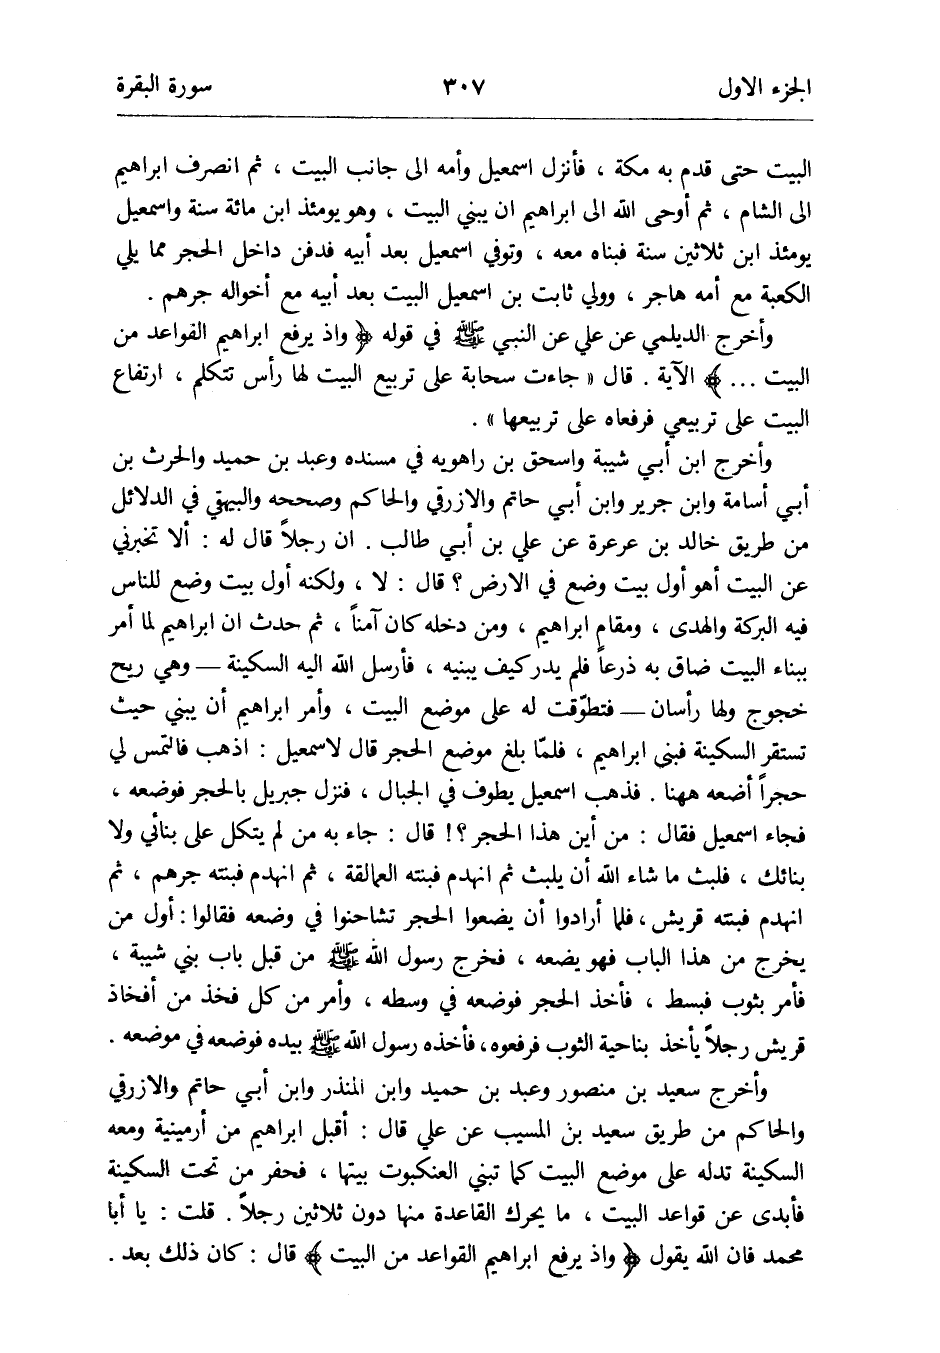 الجزء الاول ٣٠٧ سورة البقرة
البيت حتى قدم به مكة ، فأنزل اسمعيل وأمه الى جانب البيت ، ثم انصرف ابراهيم
الى الشام ، ثم أوحى الله الى ابراهيم ان يبني البيت ، وهو يومئذ ابن مائة سنة واسمعيل
يومئذ ابن ثلاثين سنة فبناه معه ، وتوفي اسمعيل بعد أبيه فدفن داخل الحجر مما يلي
الكعبة مع أمه هاجر ، وولي ثابت بن اسمعيل البيت بعد أبيه مع أخواله جرهم .
وأخرج الديلمي عن علي عن النبي ﷺ في قوله ﴿ واذ يرفع ابراهيم القواعد من
البيت ... ﴾ الآية . قال « جاءت سحابة على تربيع البيت لها رأس تتكلم ، ارتفاع
البيت على تربيعي فرفعاه على تربيعها » .
وأخرج ابن أبي شيبة واسحق بن راهويه في مسنده وعبد بن حميد والحرث بن
أبي أسامة وابن جرير وابن أبي حاتم والازرقي والحاكم وصححه والبيهقي في الدلائل
من طريق خالد بن عرعرة عن علي بن أبي طالب . ان رجلاً قال له : ألا تخبرني
عن البيت أهو أول بيت وضع في الارض ؟ قال : لا ، ولكنه أول بيت وضع للناس
فيه البركة والهدى ، ومقام ابراهيم ، ومن دخله كان آمناً ، ثم حدث ان ابراهيم لما أمر
ببناء البيت ضاق به ذرعاً فلم يدر كيف يبنيه ، فأرسل الله اليه السكينة — وهي ريح
خجوج ولها رأسان — فتطوّقت له على موضع البيت ، وأمر ابراهيم أن يبني حيث
تستقر السكينة فبنى ابراهيم ، فلمّا بلغ موضع الحجر قال لاسمعيل : اذهب فالتمس لي
حجراً أضعه ههنا . فذهب اسمعيل يطوف في الجبال ، فنزل جبريل بالحجر فوضعه ،
فجاء اسمعيل فقال : من أين هذا الحجر ؟! قال : جاء به من لم يتكل على بنائي ولا
بنائك ، فلبث ما شاء الله أن يلبث ثم انهدم فبنته العمالقة ، ثم انهدم فبنته جرهم ، ثم
انهدم فبنته قريش ، فلما أرادوا أن يضعوا الحجر تشاحنوا في وضعه فقالوا : أول من
يخرج من هذا الباب فهو يضعه ، فخرج رسول الله ﷺ من قبل باب بني شيبة ،
فأمر بثوب فبسط ، فأخذ الحجر فوضعه في وسطه ، وأمر من كل فخذ من أفخاذ
قريش رجلاً يأخذ بناحية الثوب فرفعوه ، فأخذه رسول الله ﷺ بيده فوضعه في موضعه .
وأخرج سعيد بن منصور وعبد بن حميد وابن المنذر وابن أبي حاتم والازرقي
والحاكم من طريق سعيد بن المسيب عن علي قال : أقبل ابراهيم من أرمينية ومعه
السكينة تدله على موضع البيت كما تبني العنكبوت بيتها ، فحفر من تحت السكينة
فأبدى عن قواعد البيت ، ما يحرك القاعدة منها دون ثلاثين رجلاً . قلت : يا أبا
محمد فان الله يقول ﴿ واذ يرفع ابراهيم القواعد من البيت ﴾ قال : كان ذلك بعد .